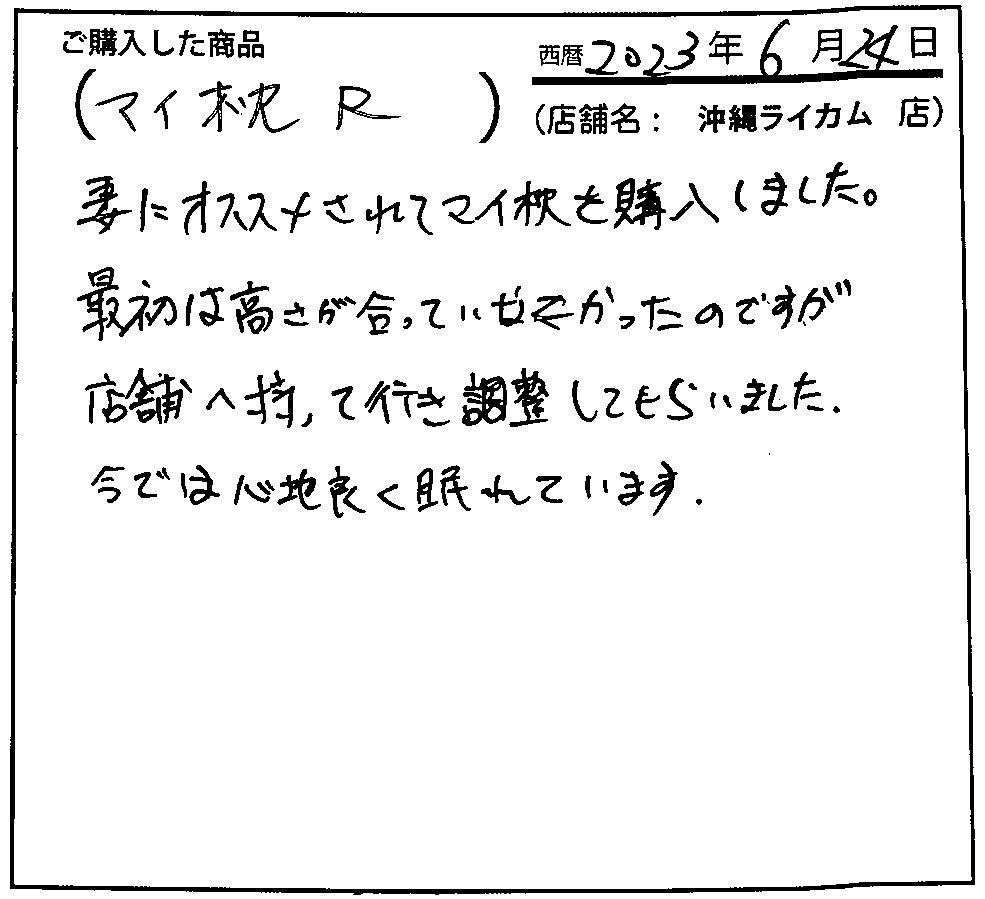 ご購入した商品
西暦 2023年 6月24日
(マイ枕 R)
(店舗名: 沖縄ライカム 店)
妻にオススメされてマイ枕を購入しました。
最初は高さが合っていなかったのですが
店舗へ持って行き調整してもらいました.
今では心地良く眠れています.